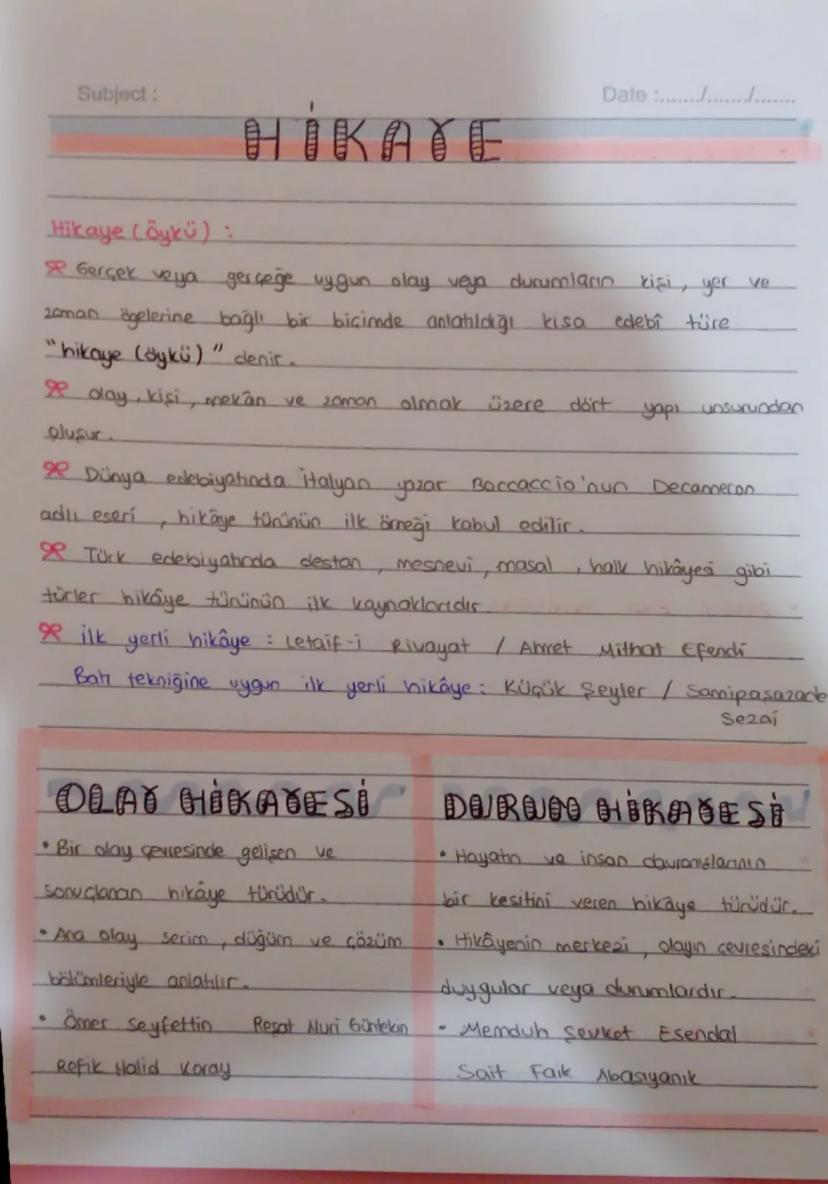 Subject :
Date :......./......./.......
HİKAYE
Hikaye (öykü) :
Gerçek veya gerçeğe uygun olay veya durumların kişi, yer ve
zaman ögelerine bağlı bir biçimde anlatıldığı kısa edebî türe
"hikaye (öykü)" denir.
olay, kişi, mekân ve zaman olmak üzere dört yapı unsurundan
oluşur.
Dünya edebiyatında İtalyan yazar Boccaccio'nun Decameron
adlı eseri, hikâye türünün ilk örneği kabul edilir.
Türk edebiyatında destan, mesnevi, masal, halk hikâyesi gibi
türler hikâye türünün ilk kaynaklarıdır.
İlk yerli hikâye : Letaif-i Rivayat / Ahmet Mithat Efendi
Batı tekniğine uygun ilk yerli hikâye : Küçük Şeyler / Samipaşazade
Sezai
OLAY HİKAYESİ
• Bir olay çevresinde gelişen ve
sonuçlanan hikâye türüdür.
• Ana olay serim, düğüm ve çözüm
bölümleriyle anlatılır.
• Ömer Seyfettin Reşat Nuri Güntekin
Refik Halid Karay
DURUM HİKAYESİ
• Hayatın ve insan davranışlarının
bir kesitini veren hikâye türüdür.
• Hikâyenin merkezi, olayın çevresindeki
duygular veya durumlardır.
• Memduh Şevket Esendal
Sait Faik Abasıyanık